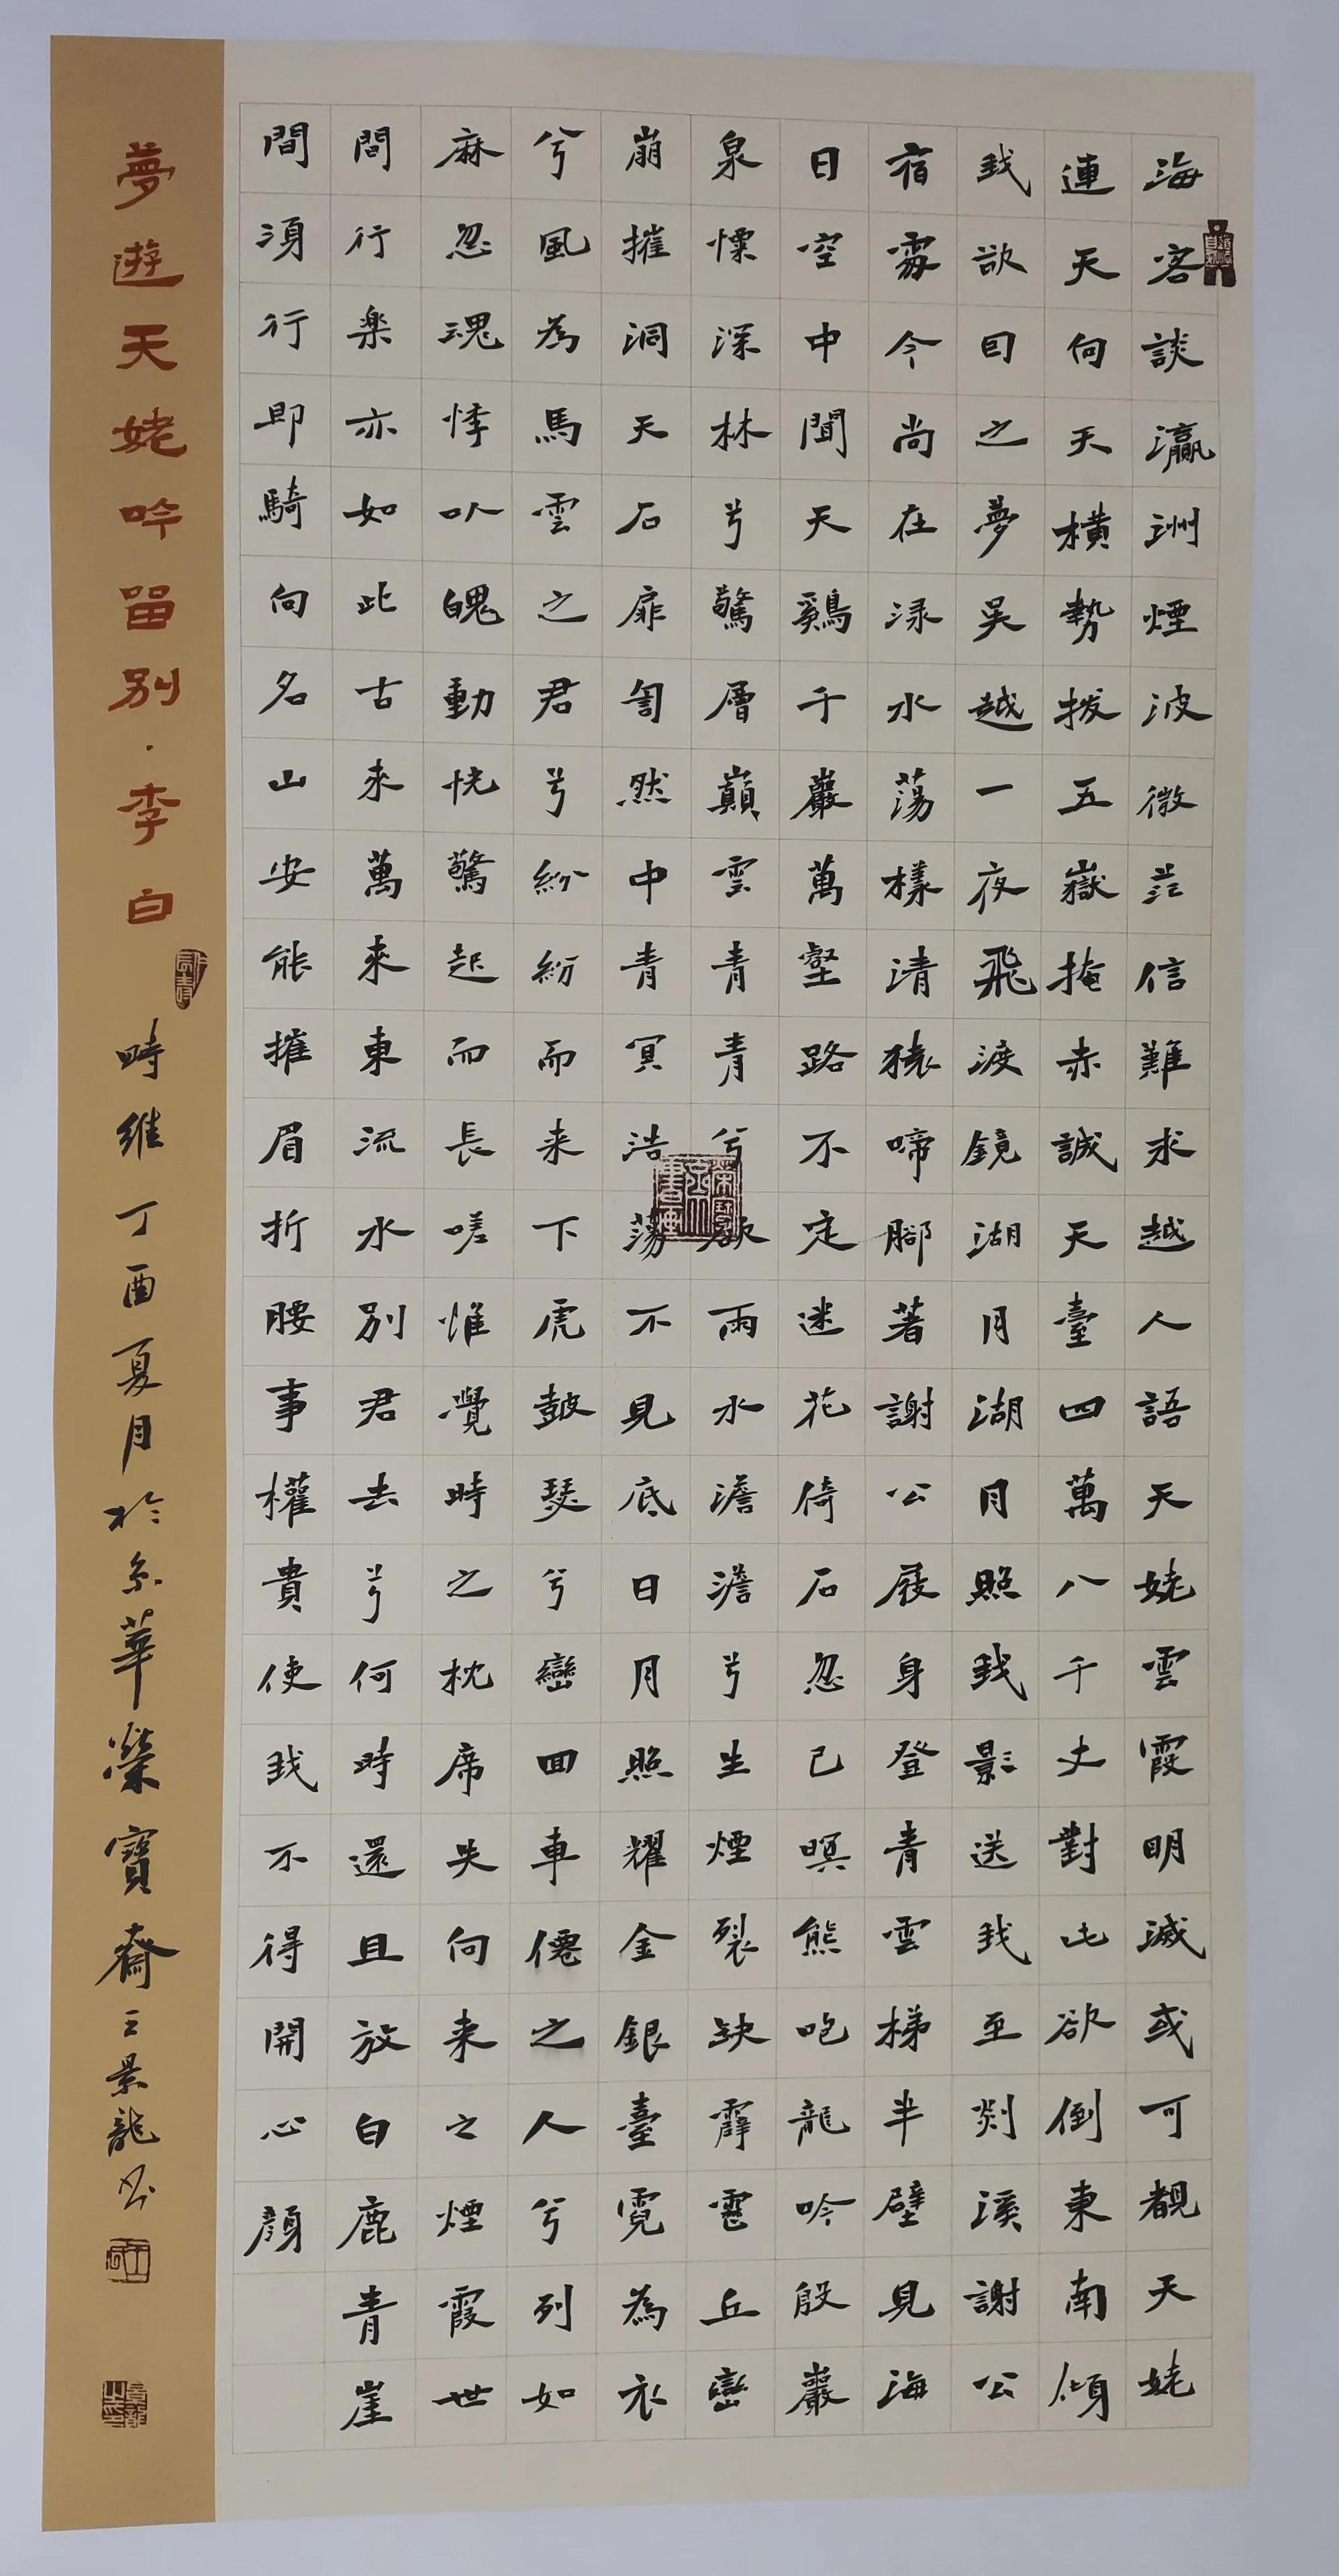 海客談瀛洲煙波微茫信難求越人語天姥雲霞明滅或可覩天姥
連天向天橫勢拔五嶽掩赤誠天臺四萬八千丈對此欲倒東南傾
我欲因之夢吳越一夜飛渡鏡湖月湖月照我影送我至剡溪謝公
宿處今尚在渌水蕩樣清猿啼腳著謝公屐身登青雲梯半壁見海
日空中聞天鷄千巖萬壑路不定迷花倚石忽已暝熊咆龍吟殷巖
泉慄深林兮驚層巔雲青青兮欲雨水澹澹兮生煙裂缺霹靂丘巒
崩摧洞天石扉訇然中青冥浩蕩不見底日月照耀金銀臺霓為衣
兮風為馬雲之君兮紛紛而来下虎鼓瑟兮巒回車僊之人兮列如
麻忽魂悸以魄動恍驚起而長嗟惟覺時之枕席失向来之煙霞世
間行楽亦如此古來萬來東流水別君去兮何時還且放白鹿青崖
間須行即騎向名山安能摧眉折腰事權貴使我不得開心顏
夢遊天姥吟留別·李白 時維丁酉夏月於京華榮寶齋王景龍書